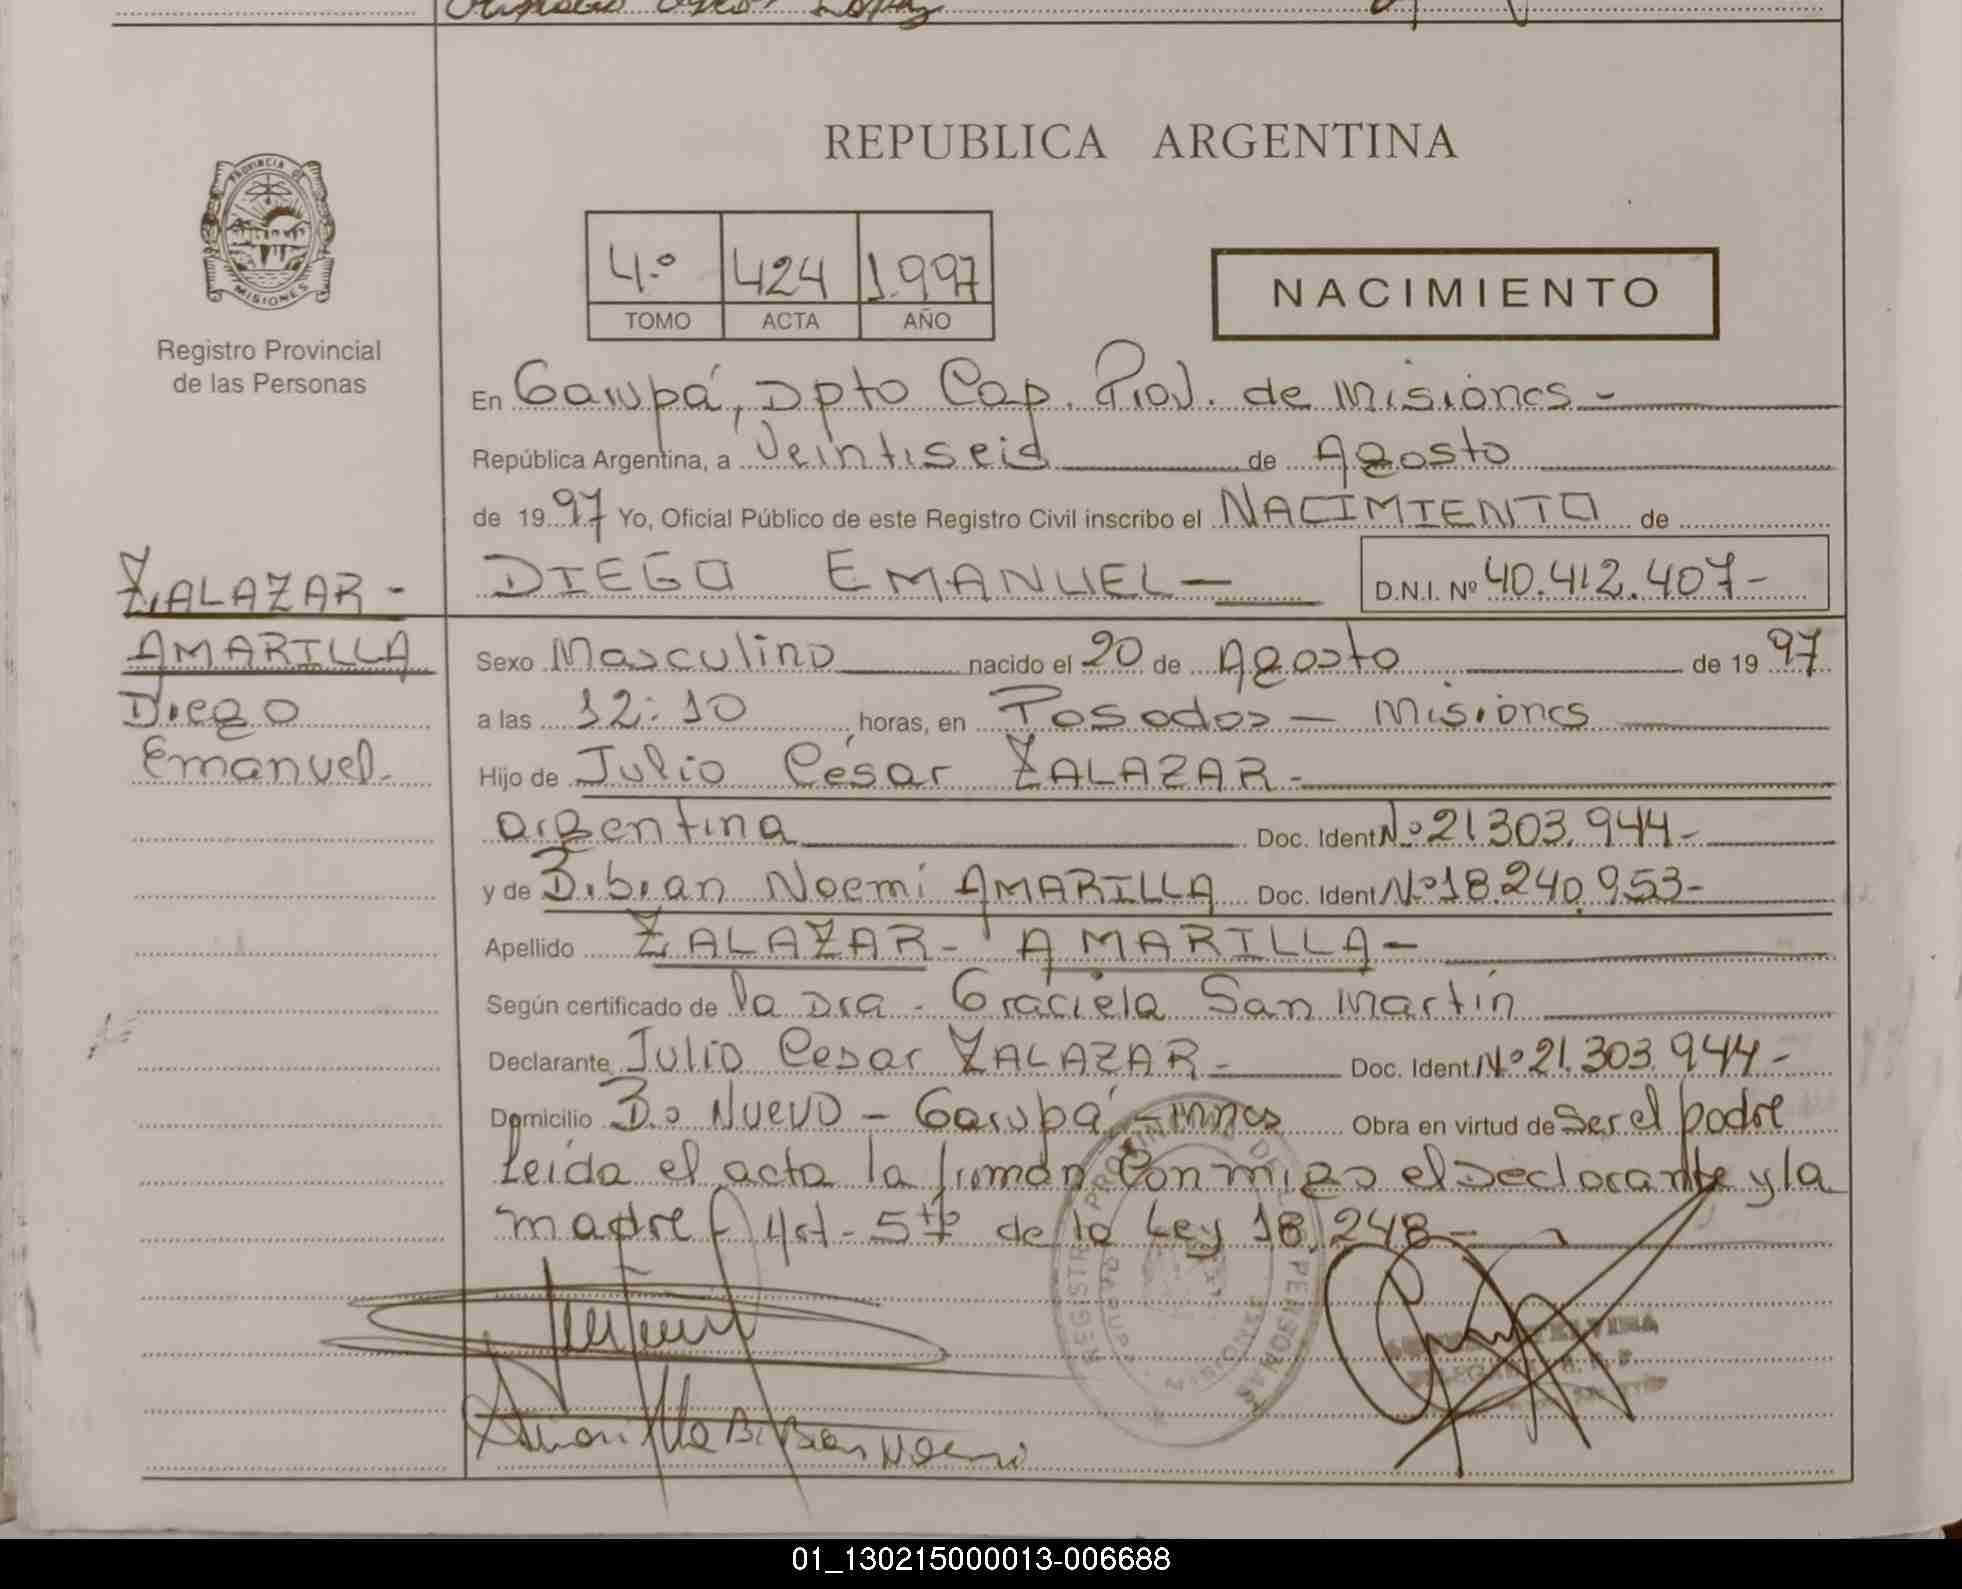 López
REPUBLICA ARGENTINA
PROVINCIA DE
MISIONES
Registro Provincial
de las Personas
4.º 424 1.997
TOMO ACTA AÑO
NACIMIENTO
En Garupá, Dpto Cap. Prov. de Misiones -
República Argentina, a Veintiseis de Agosto
de 1997 Yo, Oficial Público de este Registro Civil inscribo el NACIMIENTO de
DIEGO EMANUEL - D.N.I. Nº 40.412.407-
ZALAZAR -
AMARILLA
Diego
Emanuel-
Sexo Masculino nacido el 20 de Agosto de 1997
a las 12:10 horas, en Posadas - Misiones
Hijo de Julio César ZALAZAR -
argentina Doc. Ident Nº 21.303.944-
y de Bibian Noemi AMARILLA Doc. Ident Nº 18.240.953-
Apellido ZALAZAR - AMARILLA -
Según certificado de la Dra - Graciela San Martín
Declarante Julio Cesar ZALAZAR - Doc. Ident. Nº 21.303.944-
Domicilio Bº Nuevo - Garupá - mnes Obra en virtud de Ser el padre
Leída el acta la firman Conmigo el Declarante y la
madre Art - 5to de la Ley 18.248 -
REGISTRO PROVINCIAL DE PERSONAS
MISIONES
Amarilla Bibian Noemi
01_130215000013-006688